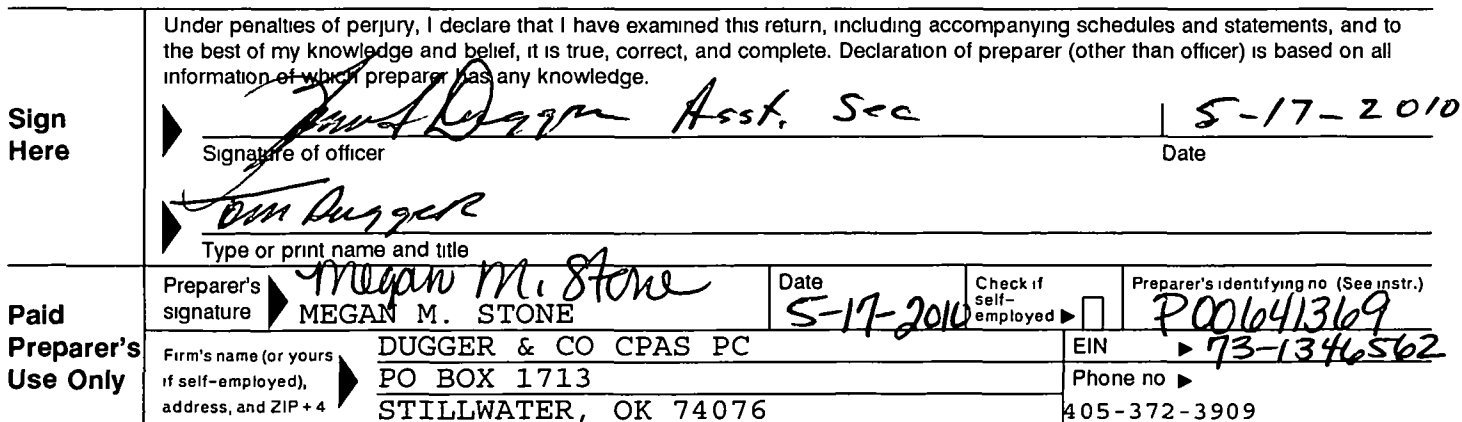 Under penalties of perjury, I declare that I have examined this return, including accompanying schedules and statements, and to
the best of my knowledge and belief, it is true, correct, and complete. Declaration of preparer (other than officer) is based on all
information of which preparer has any knowledge.
Sign Here
Dugger Asst. Sec 5-17-2010
Signature of officer Date
Tom Dugger
Type or print name and title
Paid Preparer's Use Only
Preparer's signature Megan M. Stone
MEGAN M. STONE
Date 5-17-2010
Check if self-employed
Preparer's identifying no (See instr.)
P00641369
Firm's name (or yours if self-employed), address, and ZIP + 4
DUGGER & CO CPAS PC
EIN 73-1346562
PO BOX 1713
Phone no
STILLWATER, OK 74076 405-372-3909